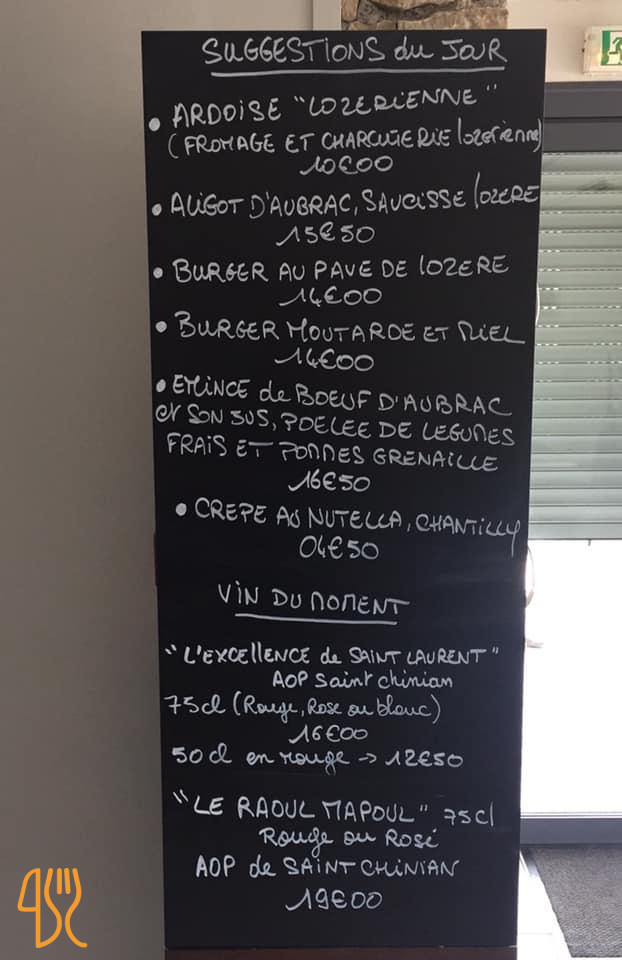 SUGGESTIONS du JOUR
• ARDOISE "LOZERIENNE"
(FROMAGE ET CHARCUTERIE lozerienne)
10€00
• ALIGOT D'AUBRAC, SAUCISSE LOZERE
15€50
• BURGER AU PAVE DE LOZERE
14€00
• BURGER MOUTARDE ET MIEL
14€00
• EMINCE de BOEUF D'AUBRAC
et SON JUS, POELEE DE LEGUMES
FRAIS ET POMMES GRENAILLE
16€50
• CREPE AU NUTELLA, CHANTILLY
04€50
VIN DU MOMENT
"L'EXCELLENCE de SAINT LAURENT"
AOP Saint Chinian
75cl (Rouge, Rose ou blanc)
16€00
50 cl en rouge -> 12€50
"LE RAOUL MAPOUL" 75cl
Rouge ou Rosé
AOP de SAINT CHINIAN
19€00